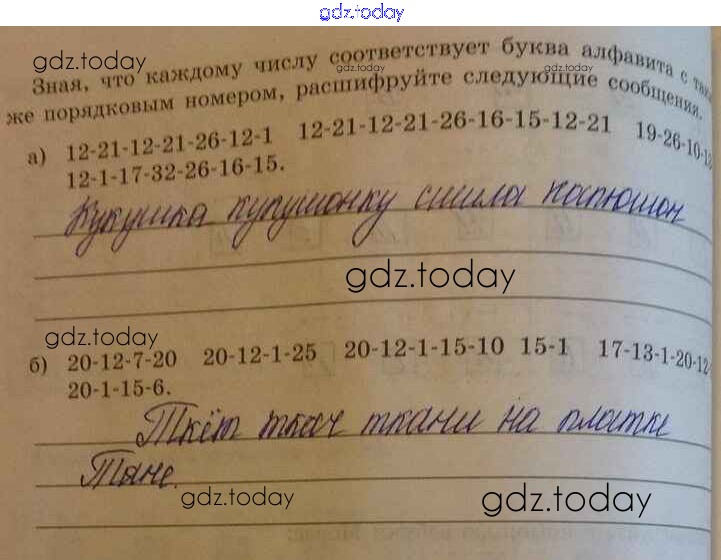 gdz.today
gdz.today
Зная, что каждому числу соответствует буква алфавита с
gdz.today gdz.today
же порядковым номером, расшифруйте следующие сообщения.
а) 12-21-12-21-26-12-1 12-21-12-21-26-16-15-12-21 19-26-10-
12-1-17-32-26-16-15.
Кукушка кукушонку сшила капюшон
gdz.today
gdz.today
б) 20-12-7-20 20-12-1-25 20-12-1-15-10 15-1 17-13-1-20-12-
20-1-15-6.
Ткёт ткач ткани на платке
Тане.
gdz.today gdz.today